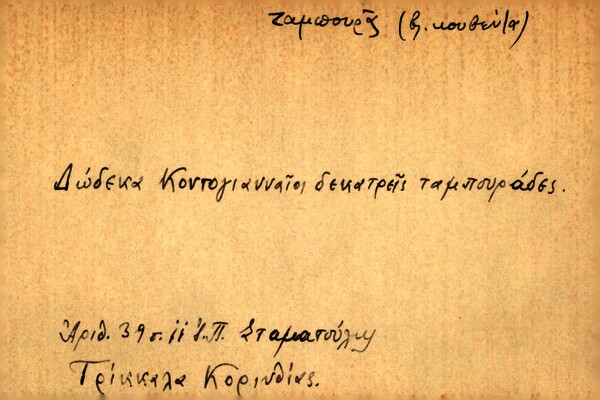 ταμπουρᾶς (βλ. κουβέντα)
Δώδεκα Κοντογιανναῖοι δεκατρεῖς ταμπουράδες.
Ἀριθ. 39 σ. 11 Π. Σταματούλη
Τρίκκαλα Κορινθίας.